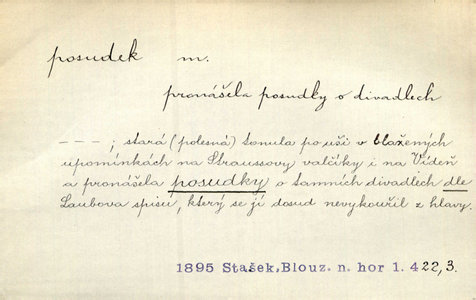 posudek m.
pronášela posudky o divadlech
– – – ; stará (polesná) tonula po uši v blažených
upomínkách na Straussovy valčíky i na Vídeň
a pronášela posudky o tamních divadlech dle
Laubova spisu, který se jí dosud nevykouřil z hlavy.
1895 Stašek, Blouz. n. hor 1. 422,3.